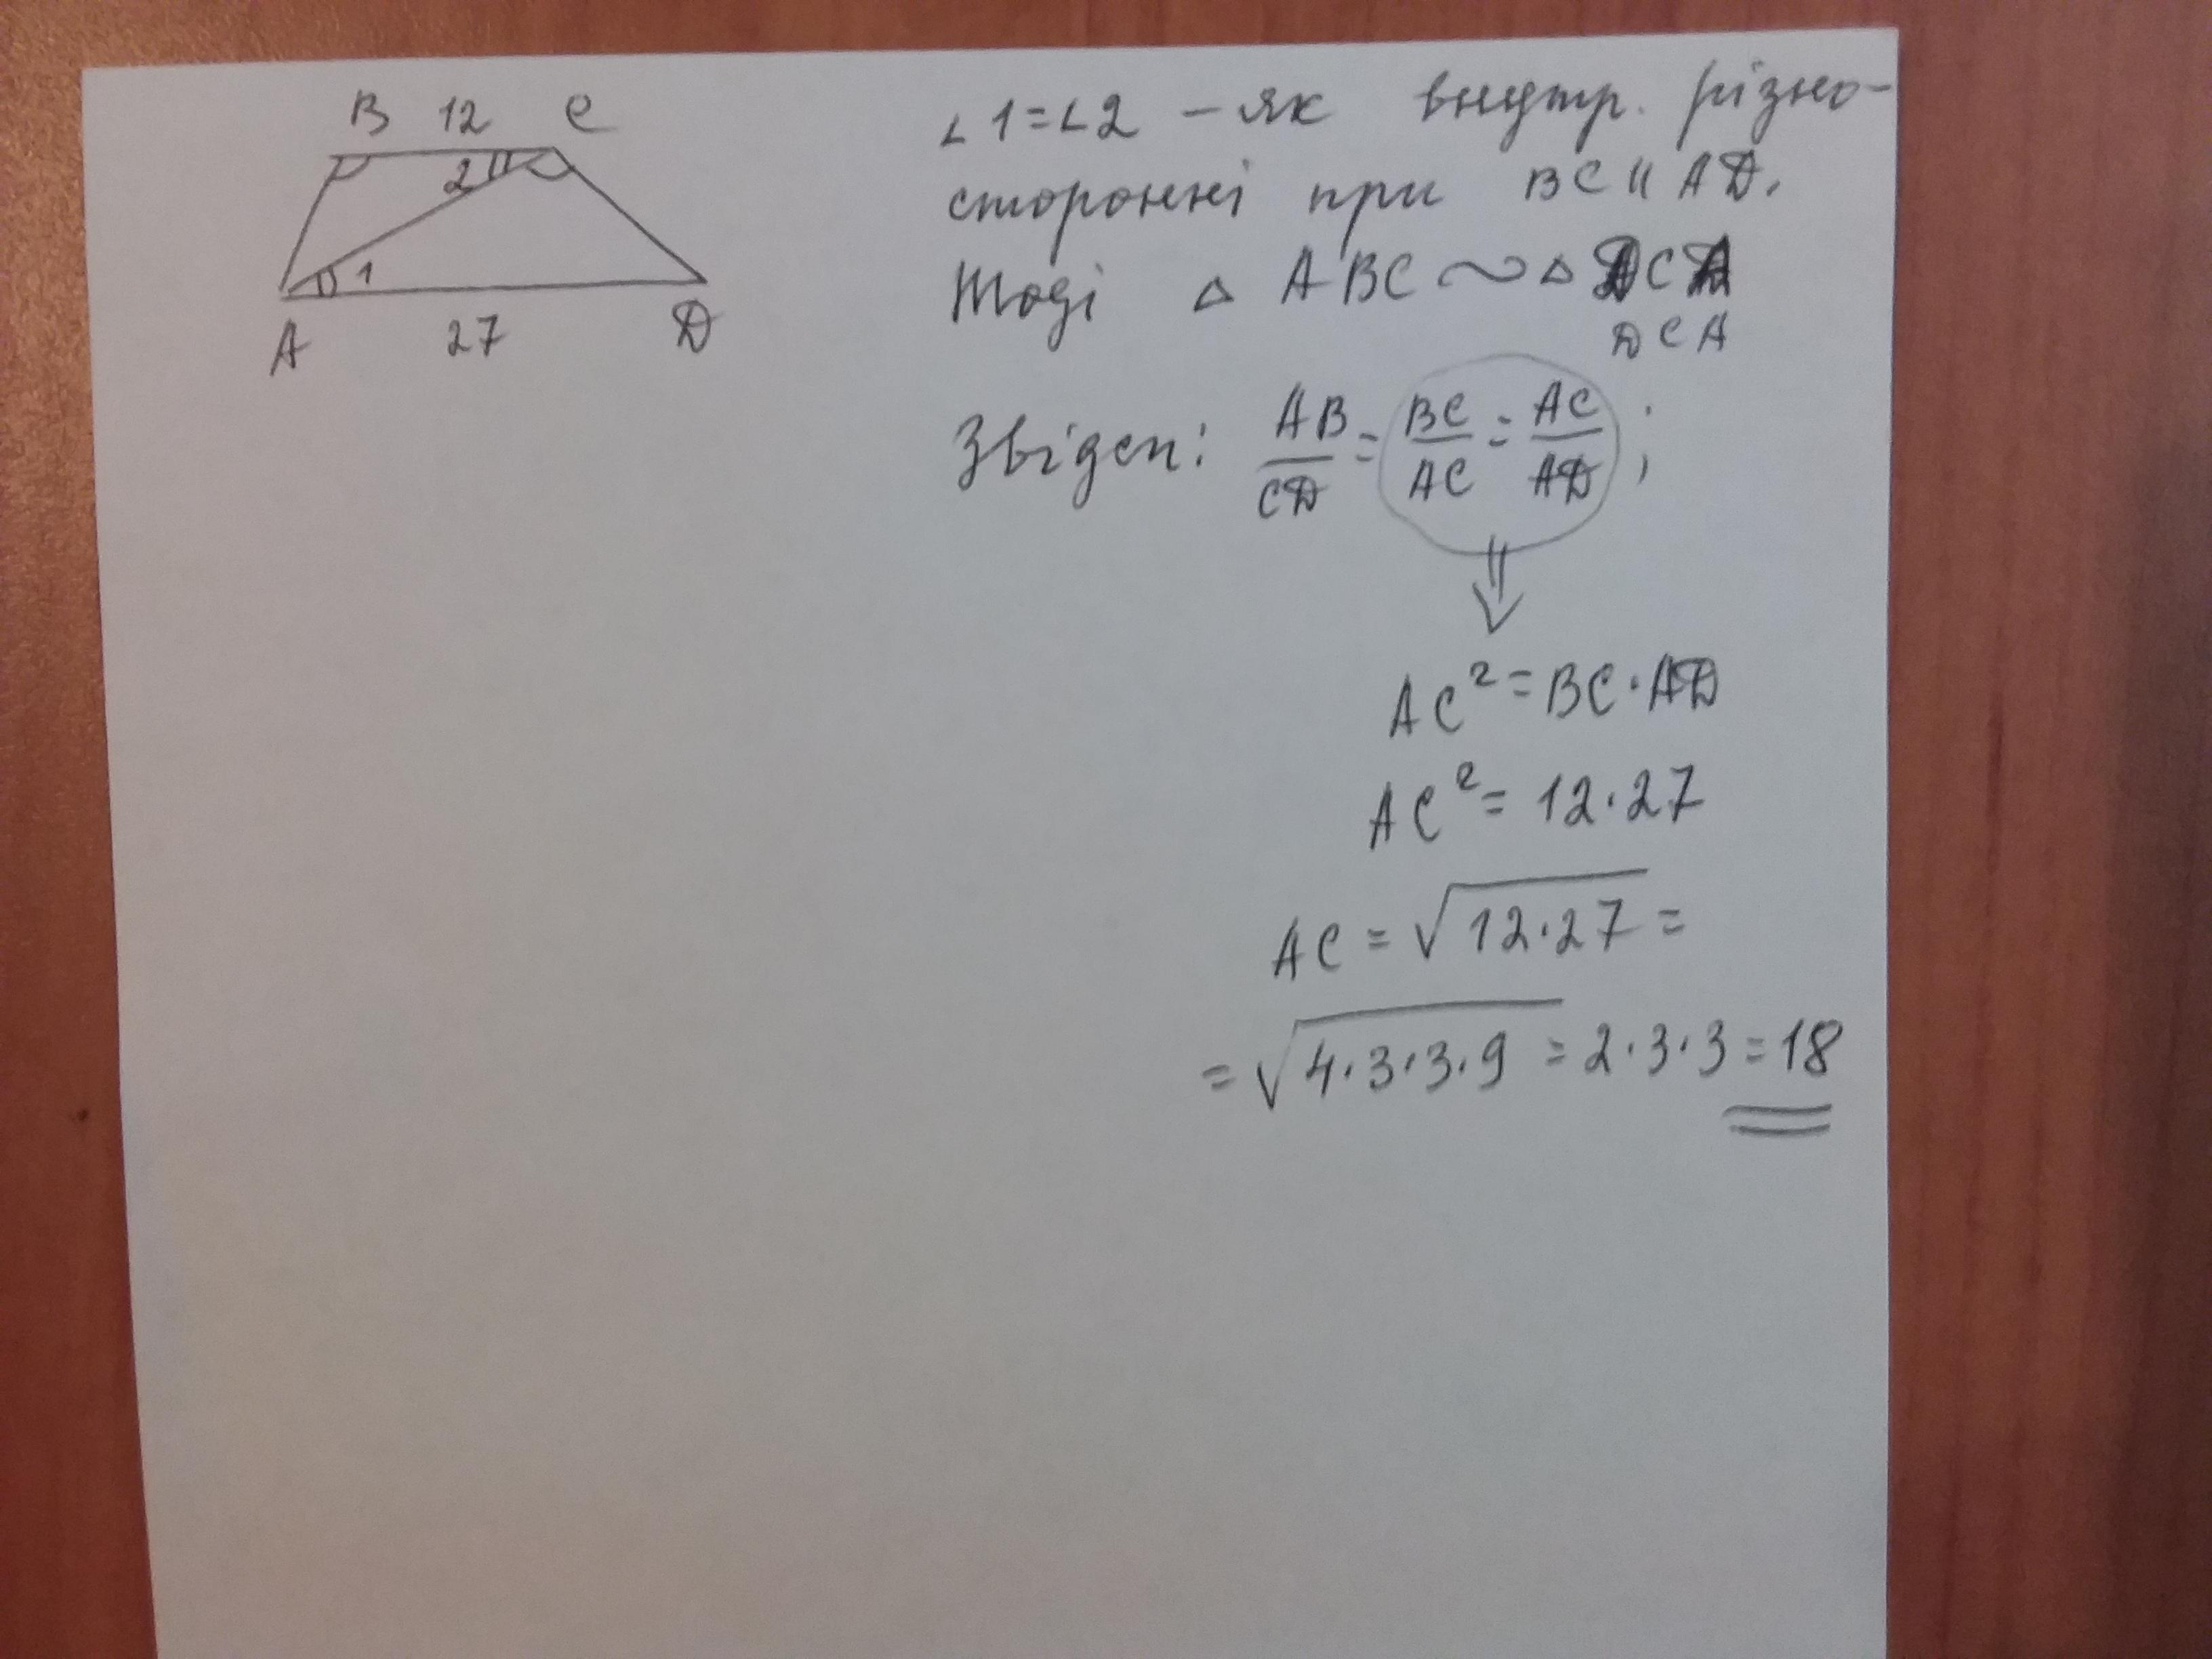 B 12 C
2
1
A 27 D
∠1=∠2 – як внутр. різно-
сторонні при BC || AD.
Тоді △ ABC ∼ △ DCA
DCA
Звідси: AB/CD = BC/AC = AC/AD ;
⇓
AC² = BC·AD
AC² = 12·27
AC = √12·27 =
= √4·3·3·9 = 2·3·3 = 18